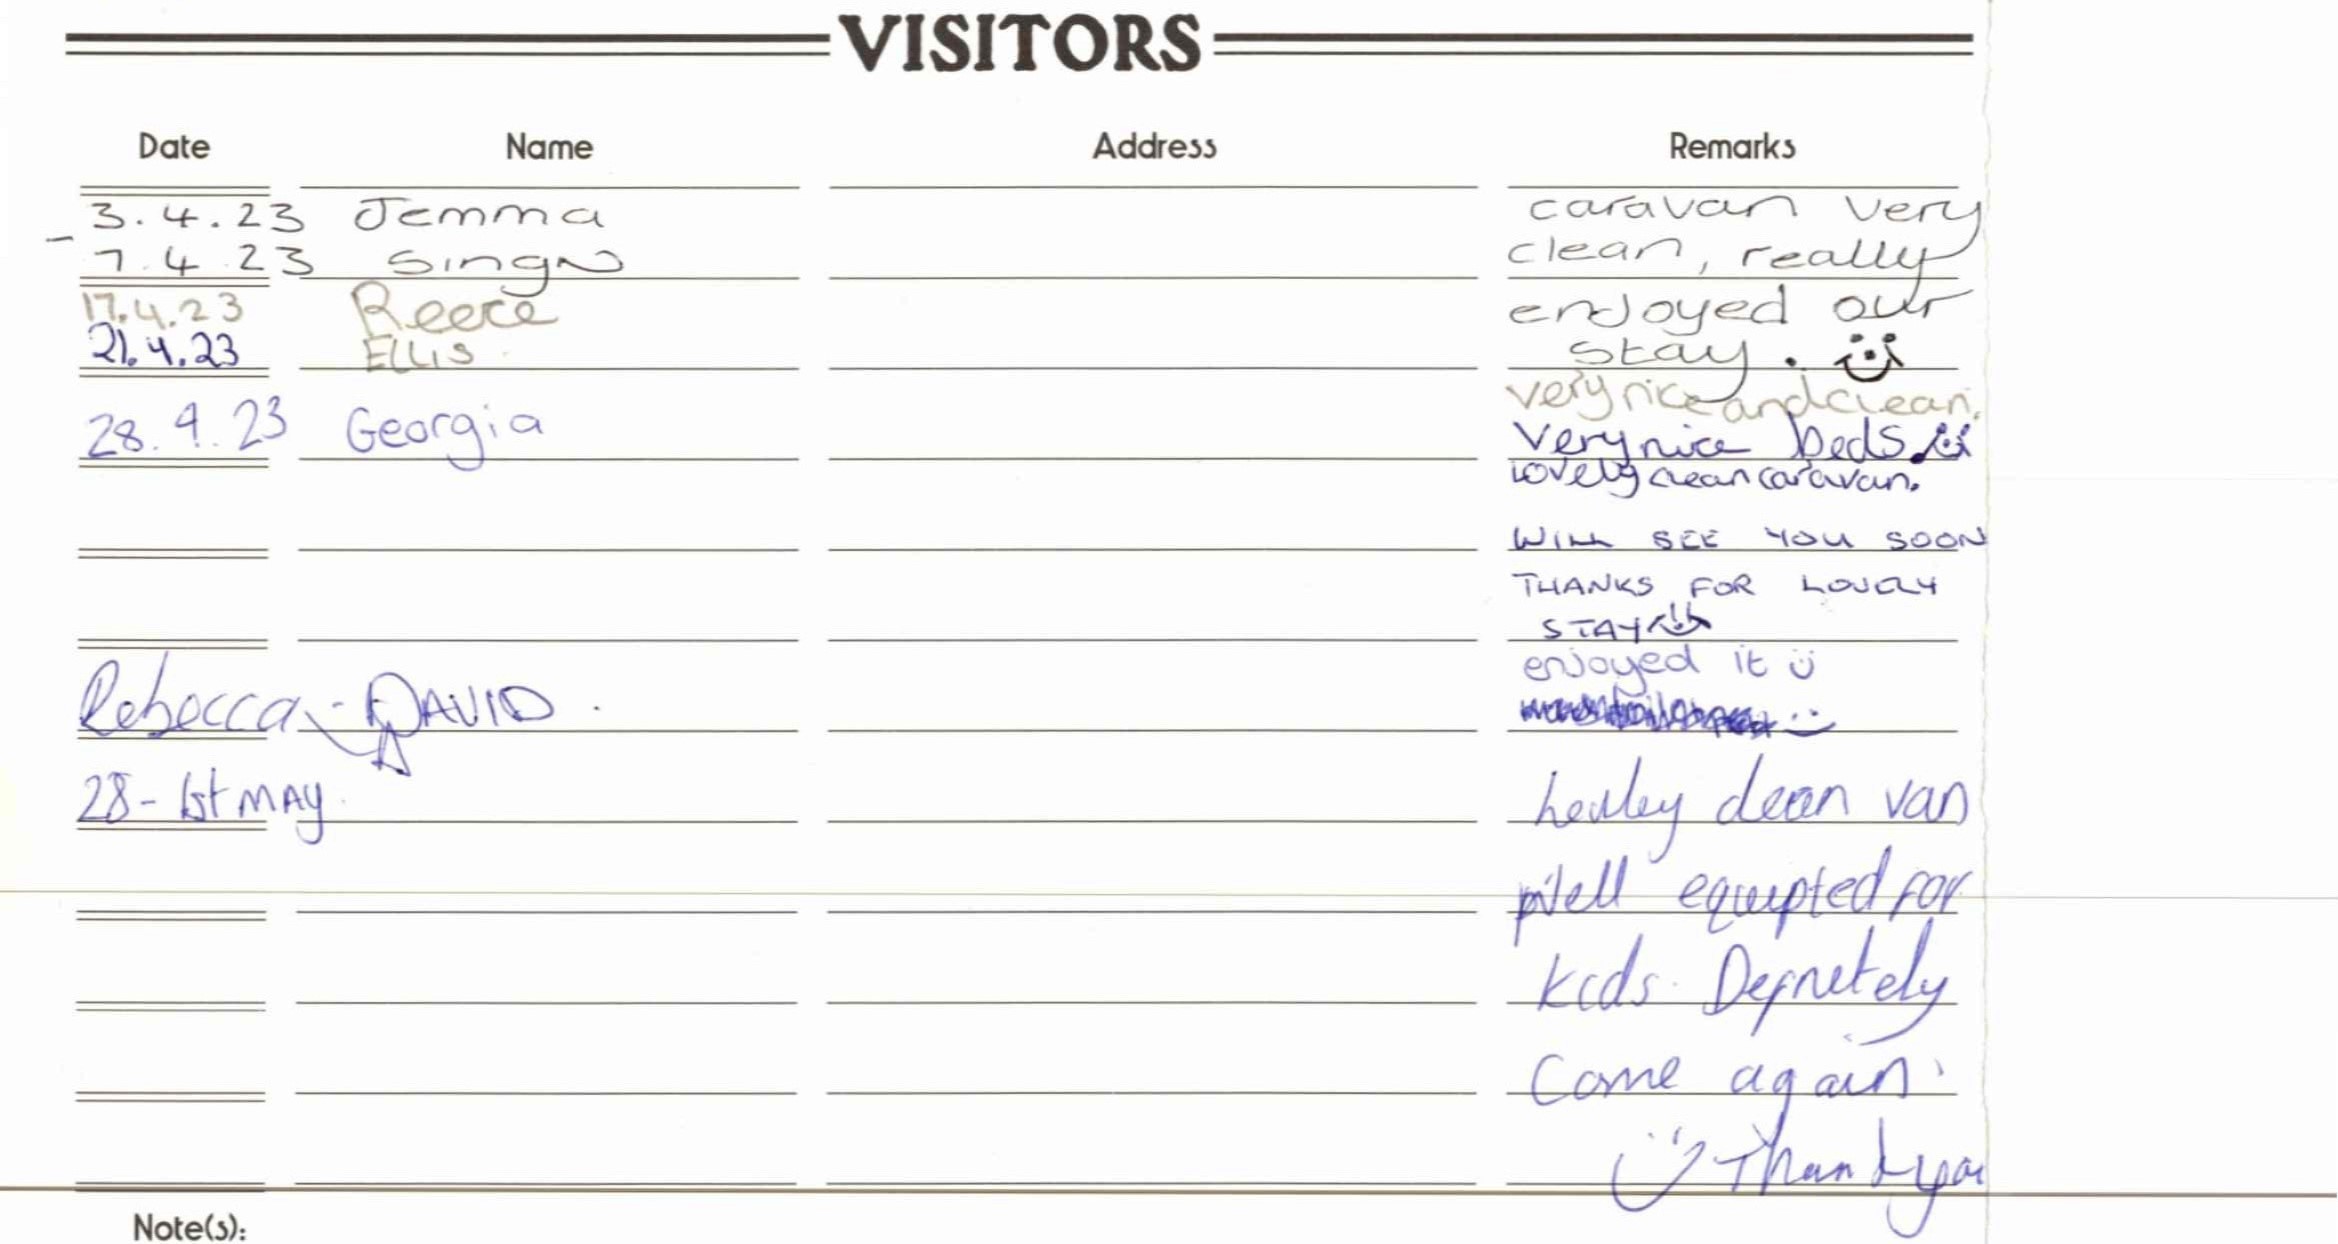 VISITORS
Date Name Address Remarks
3.4.23 Jemma caravan very
- 7.4.23 Singh clean, really
17.4.23 Reece enjoyed our
21.4.23 ELLIS stay. 
very nice and clean.
28.4.23 Georgia very nice beds
Lovely clean caravan.
WILL SEE YOU SOON
THANKS FOR LOVELY
STAY
enjoyed it
Rebecca - DAVID.
28 - 1st MAY. clean van
Well equipted for
kids. Definetely
Come again.
Thankyou
Note(s):